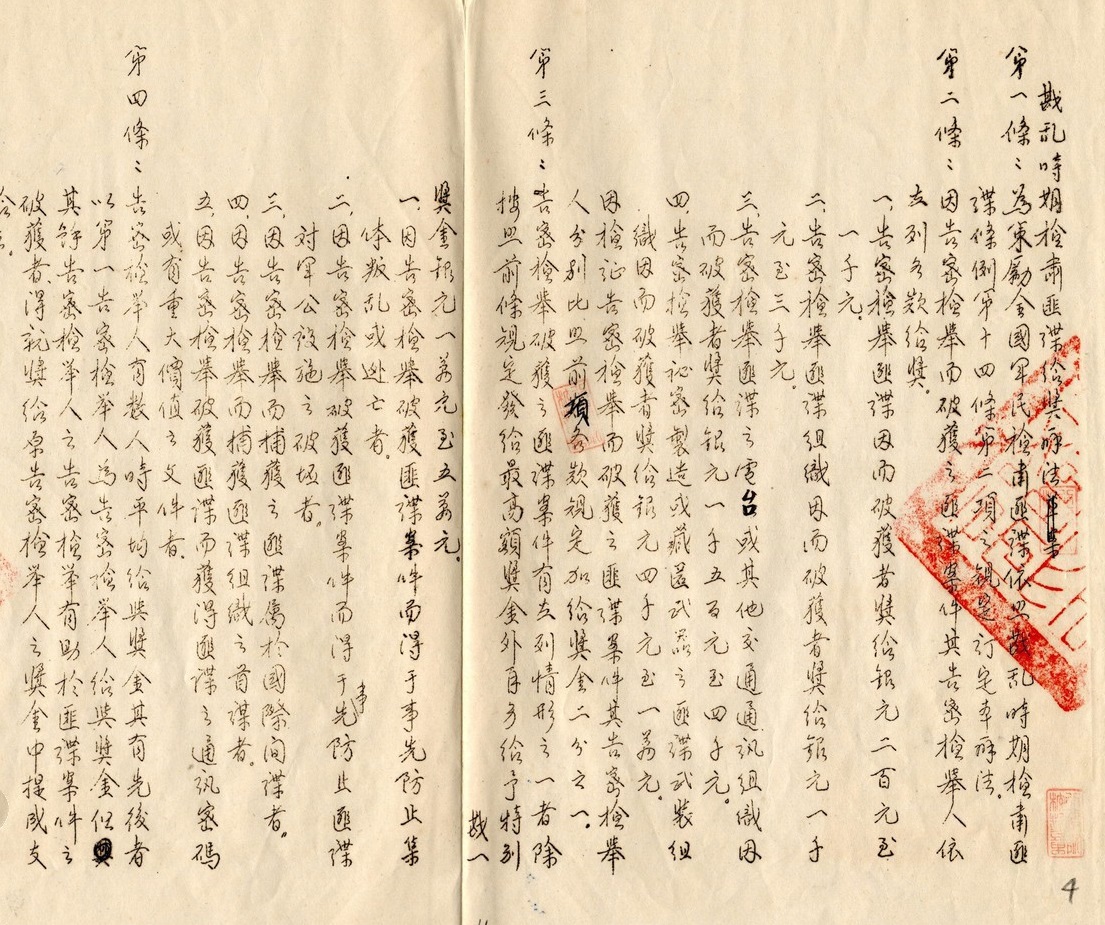 戡乱時期檢肅匪諜給奬辦法草案
第一條：為策勵全國軍民檢肅匪諜依照戡乱時期檢肅匪
諜條例第十四條第二項之規定訂定本辦法。
第二條：因告密檢舉而破獲之匪諜案件其告密檢舉人依
左列各欵給奬。
一、告密檢舉匪諜因而破獲者奬給銀元二百元至
一千元。
二、告密檢舉匪諜組織因而破獲者奬給銀元一千
元至三千元。
三、告密檢舉匪諜之電台或其他交通通訊組織因
而破獲者奬給銀元一千五百元至四千元。
四、告密檢舉祕密製造或藏匿武器之匪諜武裝組
織因而破獲者奬給銀元四千元至一萬元。
因檢証告密檢舉而破獲之匪諜案件其告密檢舉
人分别比照前項各欵規定加給奬金二分之一。
第三條：告密檢舉破獲之匪諜案件有左列情形之一者除
按照前條規定發給最高額奬金外再另給予特别
戡一
奬金銀元一萬元至五萬元。
一、因告密檢舉破獲匪諜案件而得于事先防止集
体叛乱或逃亡者。
二、因告密檢舉破獲匪諜案件而得于事先防止匪諜
對軍公設施之破坏者。
三、因告密檢舉而捕獲之匪諜屬於國際间諜者。
四、因告密檢舉而捕獲匪諜組織之首謀者。
五、因告密檢舉破獲匪諜而獲得匪諜之通訊密碼
或有重大價值之文件者。
第四條：告密檢举人有数人時平均給與奬金其有先後者
以第一告密檢举人為告密檢举人給與奬金但
其餘告密檢举人之告密檢举有助於匪諜案件之
破獲者、得就奬給原告密檢举人之奬金中提成支
給之。
4